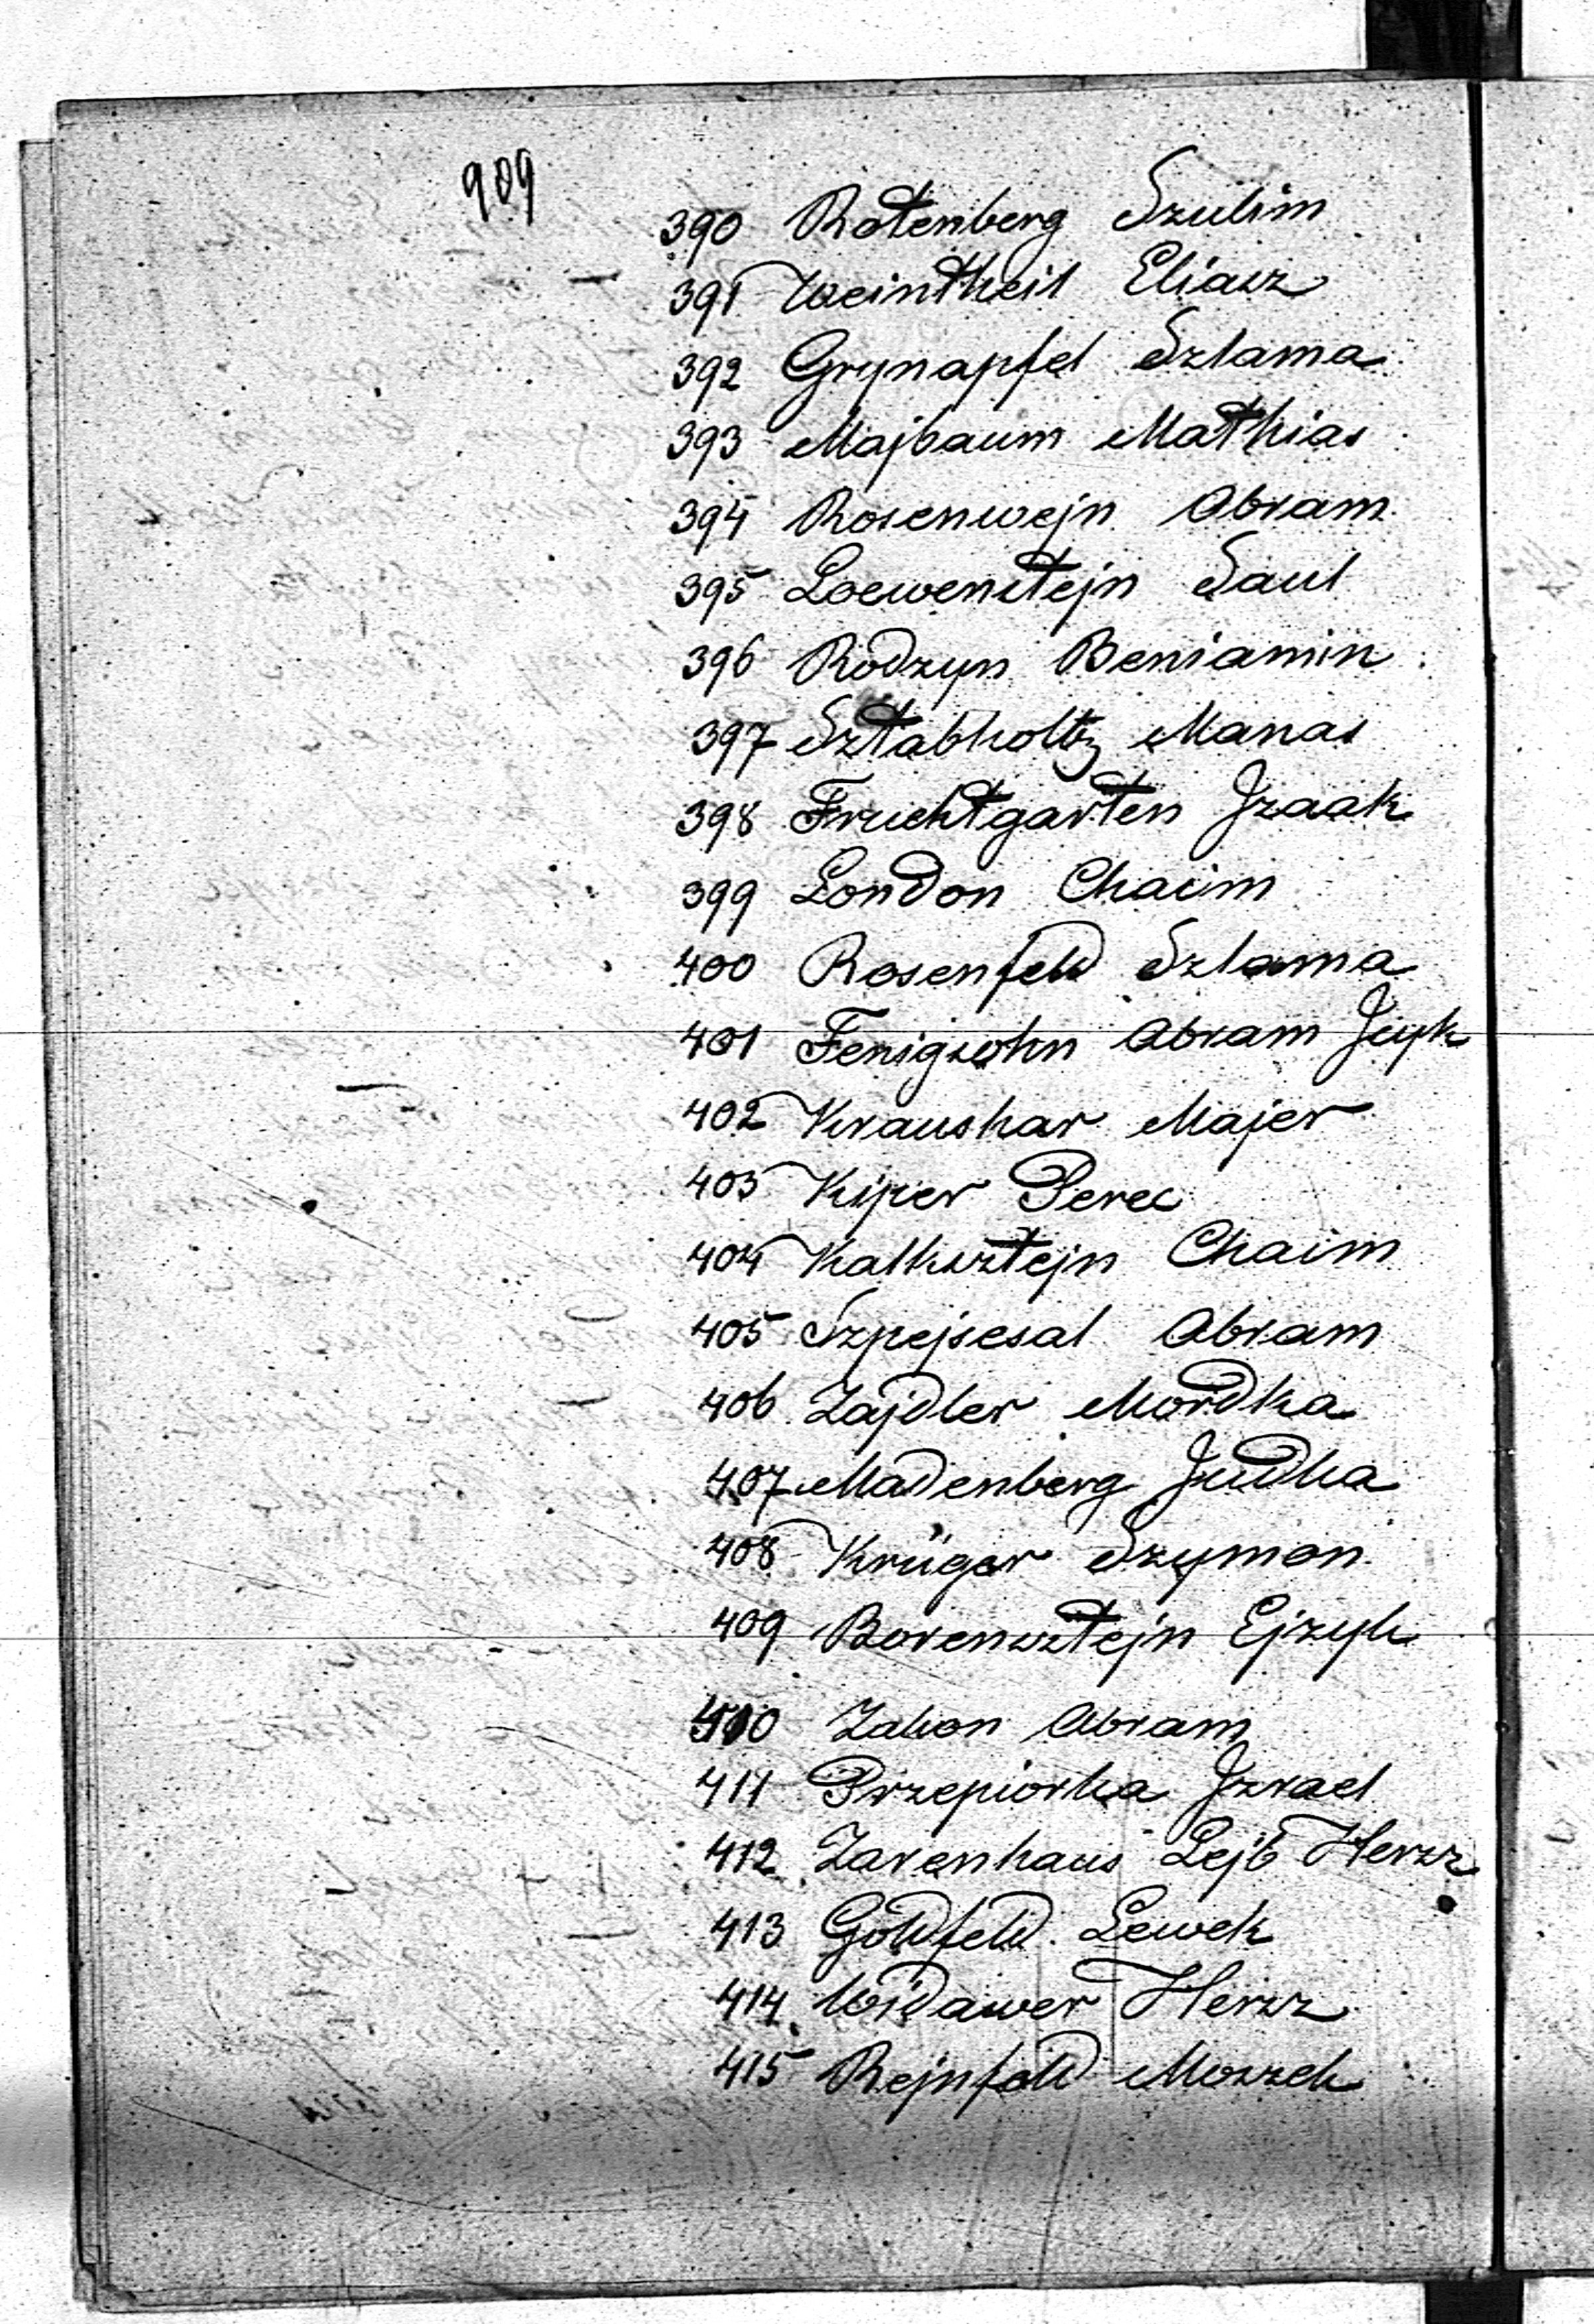 909
390 Rotenberg Szulim
391 Weintheil Eliasz
392 Grynapfel Szlama
393 Majbaum Mathias
394 Rosenwejn Abram
395 Loewenstejn Saul
396 Rodzyn Beniamin
397 Sztabholtz Manas
398 Fruchtgarten Jzaak
399 London Chaim
400 Rosenfeld Szlama
401 Fenigsohn Abram Jcyk
402 Kraushar Majer
403 Kiper Perec
404 Kalksztejn Chaim
405 Szpejsesal Abram
406 Zajdler Mordka
407 Madenberg Judka
408 Krüger Szymon
409 Borensztejn Ejzyk
410 Zakon Abram
411 Przepiorka Jzrael
412 Zarenhaus Lejb Hersz
413 Goldfeld Lewek
414 Widawer Hersz
415 Rejnfeld Moszek